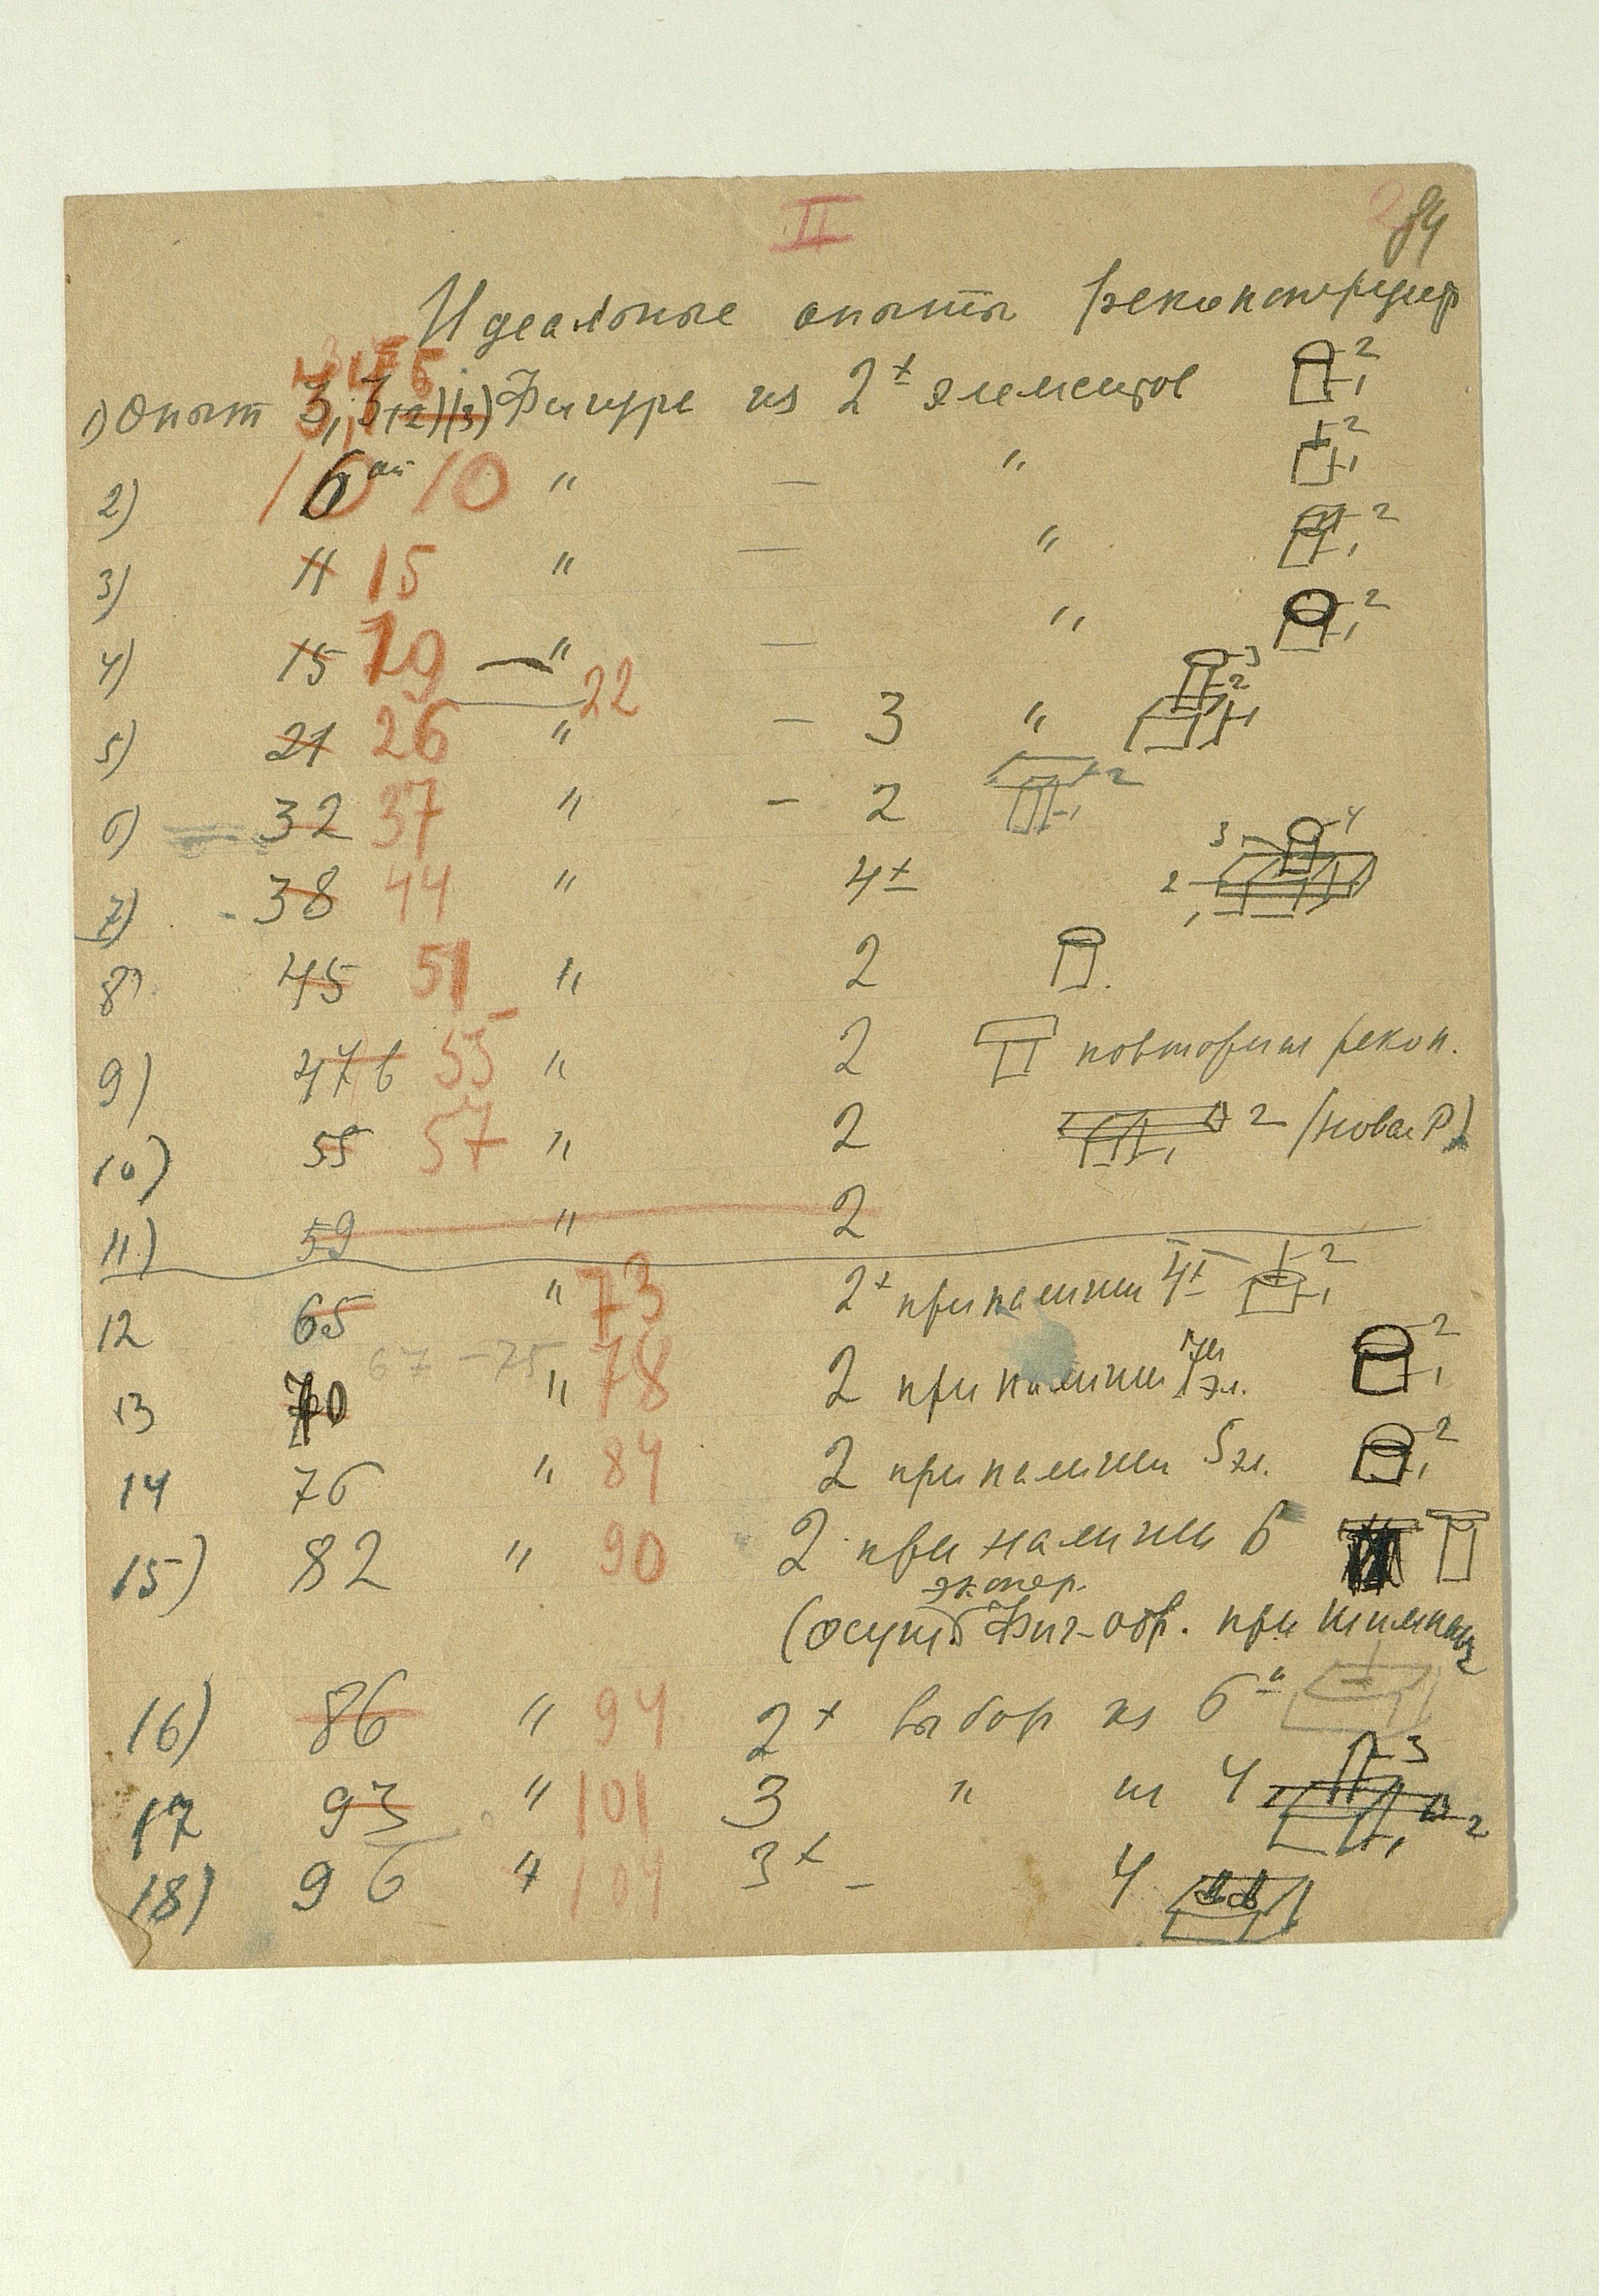 II
84
Идеальные опыты реконструкцир
1) Опыт 3, 3 (2) (3) Фигуре из 2х элементов 2 1
2) 6ой 10 " — " 2 1
3) 11 15 " — " 2 1
4) 15 19 " — " 2 1
22
5) 21 26 " — 3 " 3 2 1
6) 32 37 " — 2 2 1
7) 38 44 " 4х 3 4 2 1
8) 45 51 " 2
9) 47б 55 " 2 повторит рекон.
10) 55 57 " 2 2 1 (новая Р)
11) 59 " 2
12 65 " 73 2х при наличии 4х 2 1
13 70 67 – 75 " 78 2 при наличии эл. 2 1
14 76 " 84 2 при наличии 5 эл. 2 1
15) 82 " 90 2 при наличии 6
экспер.
(осущ. Фиг-обр. при
16) 86 " 94 2х выбор из 6и
17 93 " 101 3 " из 4 3 2 1
18) 96 " 104 3х – 4